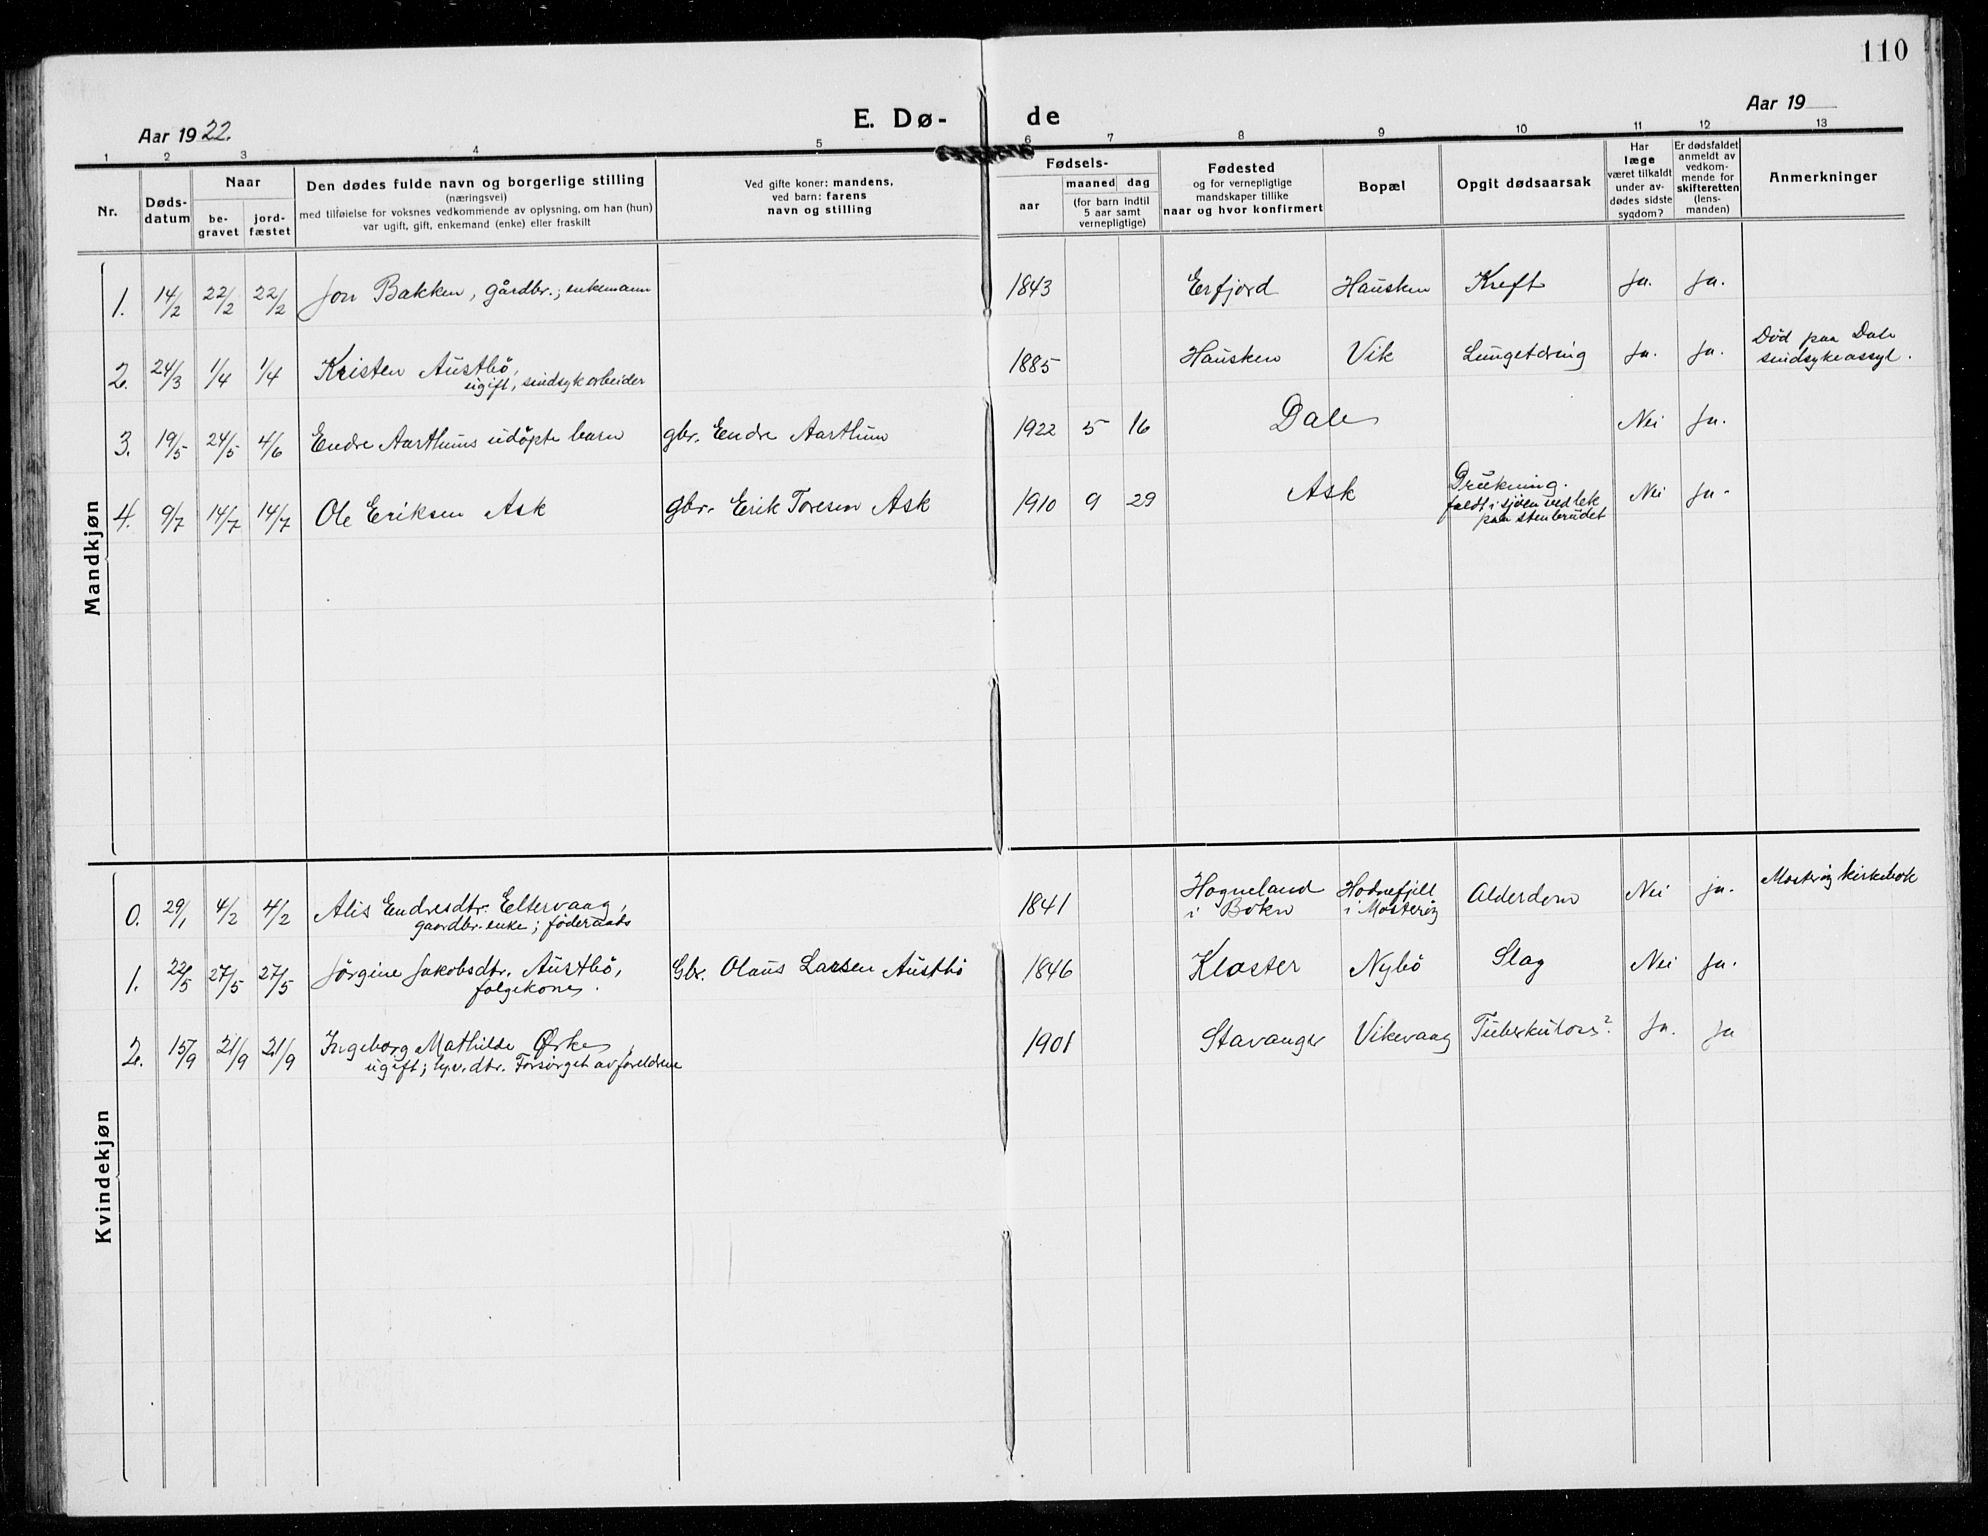 110
Aar 1922.
E. Dø- de
Aar 19
1 2 3 4 5 6 7 8 9 10 11 12 13
Nr.
Døds-
datum
Naar
be-
gravet
jord-
fæstet
Den dødes fulde navn og borgerlige stilling
(næringsvei)
med tilføielse for voksnes vedkommende av oplysning, om han (hun)
var ugift, gift, enkemand (enke) eller fraskilt
Ved gifte koner: mandens,
ved barn: farens
navn og stilling
Fødsels-
aar
maaned dag
(for barn indtil
5 aar samt
vernepligtige)
Fødested
og for vernepligtige
mandskaper tillike
naar og hvor konfirmert
Bopæl
Opgit dødsaarsak
Har
læge
været tilkaldt
under av-
dødes sidste
sygdom?
Er dødsfaldet
anmeldt av
vedkom-
mende for
skifteretten
(lens-
manden)
Anmerkninger
Mandkjøn
1. 14/2 22/2 22/2 Jon Bakken, gårdbr.; enkemann 1843 Erfjord Hausken Kreft Ja. Ja.
2. 24/3 1/4 1/4 Kristen Austbö, 1885 Hausken Vik Ja. Ja. Död paa Dale
ugift, sindsyk arbeider sindsykeasyl.
3. 19/5 24/5 4/6 Endre Aarthuns udöpte barn gbr. Endre Aarthun 1922 5 16 Dale Nei Ja.
4. 9/7 14/7 14/7 Ole Eriksen Ask gbr. Erik Toresen Ask 1910 9 29 Ask Drukning. Nei Ja.
faldt i sjöen ved lek
paa stenbrudet
Kvindekjøn
0. 29/1 4/2 4/2 Alis Endresdtr. Eltervaag, 1841 Hogneland Hodnefjell Alderdom Nei ja. Mosteröy kirkebok
gaardbr. enke; föderaads i Bokn i Mosteröy
1. 22/5 27/5 27/5 Jörgine Jakobsdtr. Austbö, Gbr. Olaus Larsen Austbö 1846 Kloster Nybö Slag Nei Ja.
folgekone.
2. 15/9 21/9 21/9 Ingeborg Mathilde Ørke, 1901 Stavanger Vikevaag Tuberkulose? Ja. Ja
ugift; dtr. Forsörget av foreldrene